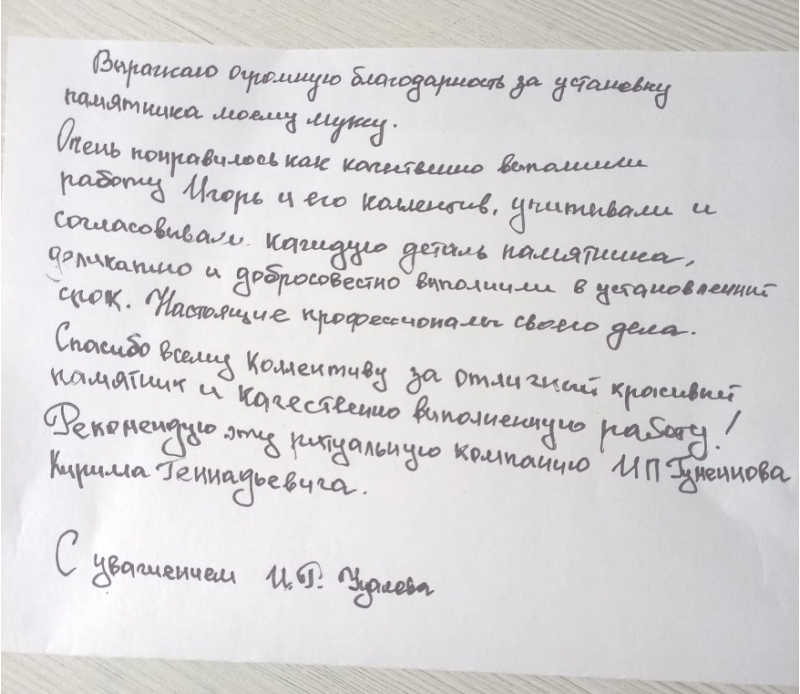 Выражаю огромную благодарность за установку
памятника моему мужу.
Очень понравилось как качественно выполнили
работу Игорь и его коллектив, учитывали и
согласовывали каждую деталь памятника,
деликатно и добросовестно выполнили в установленный
срок. Настоящие профессионалы своего дела.
Спасибо всему коллективу за отличный красивый
памятник и качественно выполненную работу!
Рекомендую эту ритуальную компанию ИП
Кирилла Геннадьевича.
С уважением И.Г.